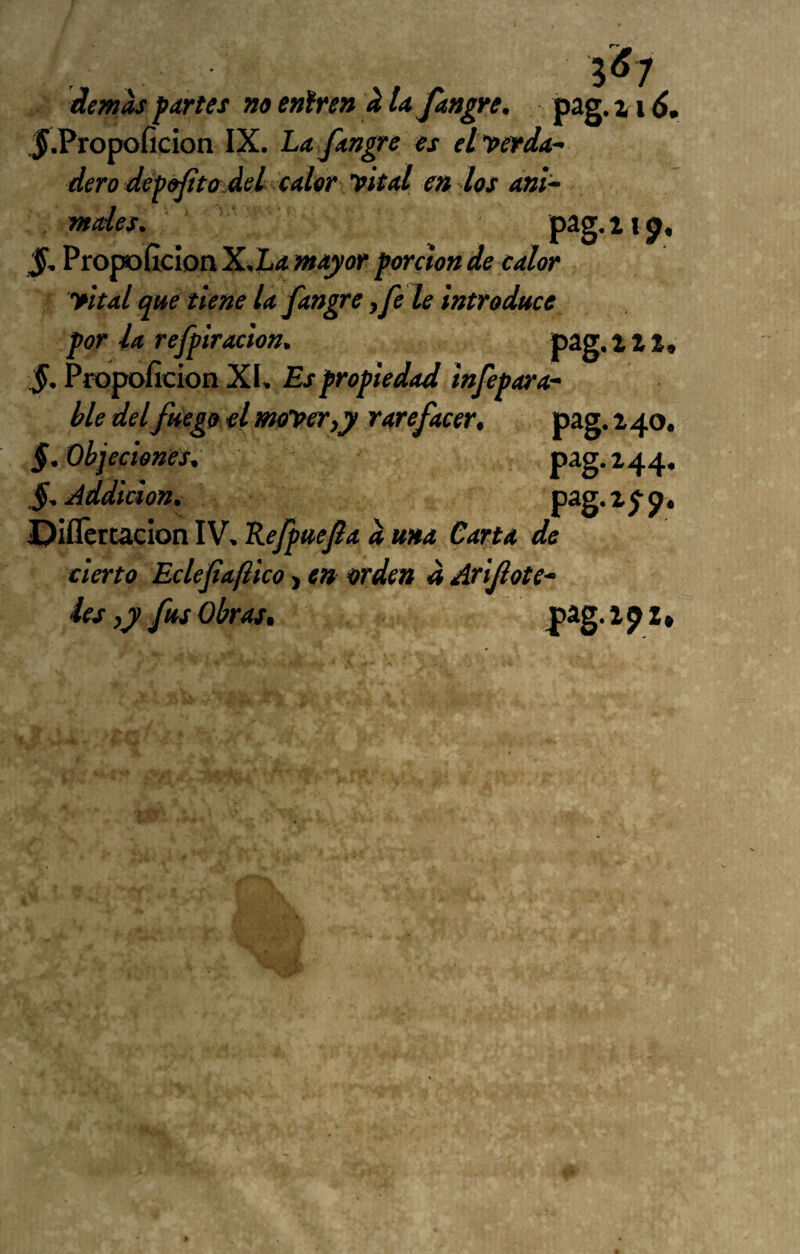 367
demàs partes no entren à la ſangre. pag. 216.
§.Propoſicion IX. La ſangre es el verda-
dero depoſito del calor vital en los ani-
males. pag. 219.
§. Propoſicion X. La mayor porcion de calor
vital que tiene la ſangre, ſe le introduce
por la reſpiracion. pag. 222.
§. Propoſicion XI. Es propiedad inſepara-
ble del fuego el mover, y rarefacer. pag. 240.
§. Objeciones. pag. 244.
§. Addicion. pag. 259.
Diſſertacion IV. Reſpueſta à una Carta de
cierto Ecleſiaſtico, en orden à Ariſtote-
les, y ſus Obras. pag. 292.